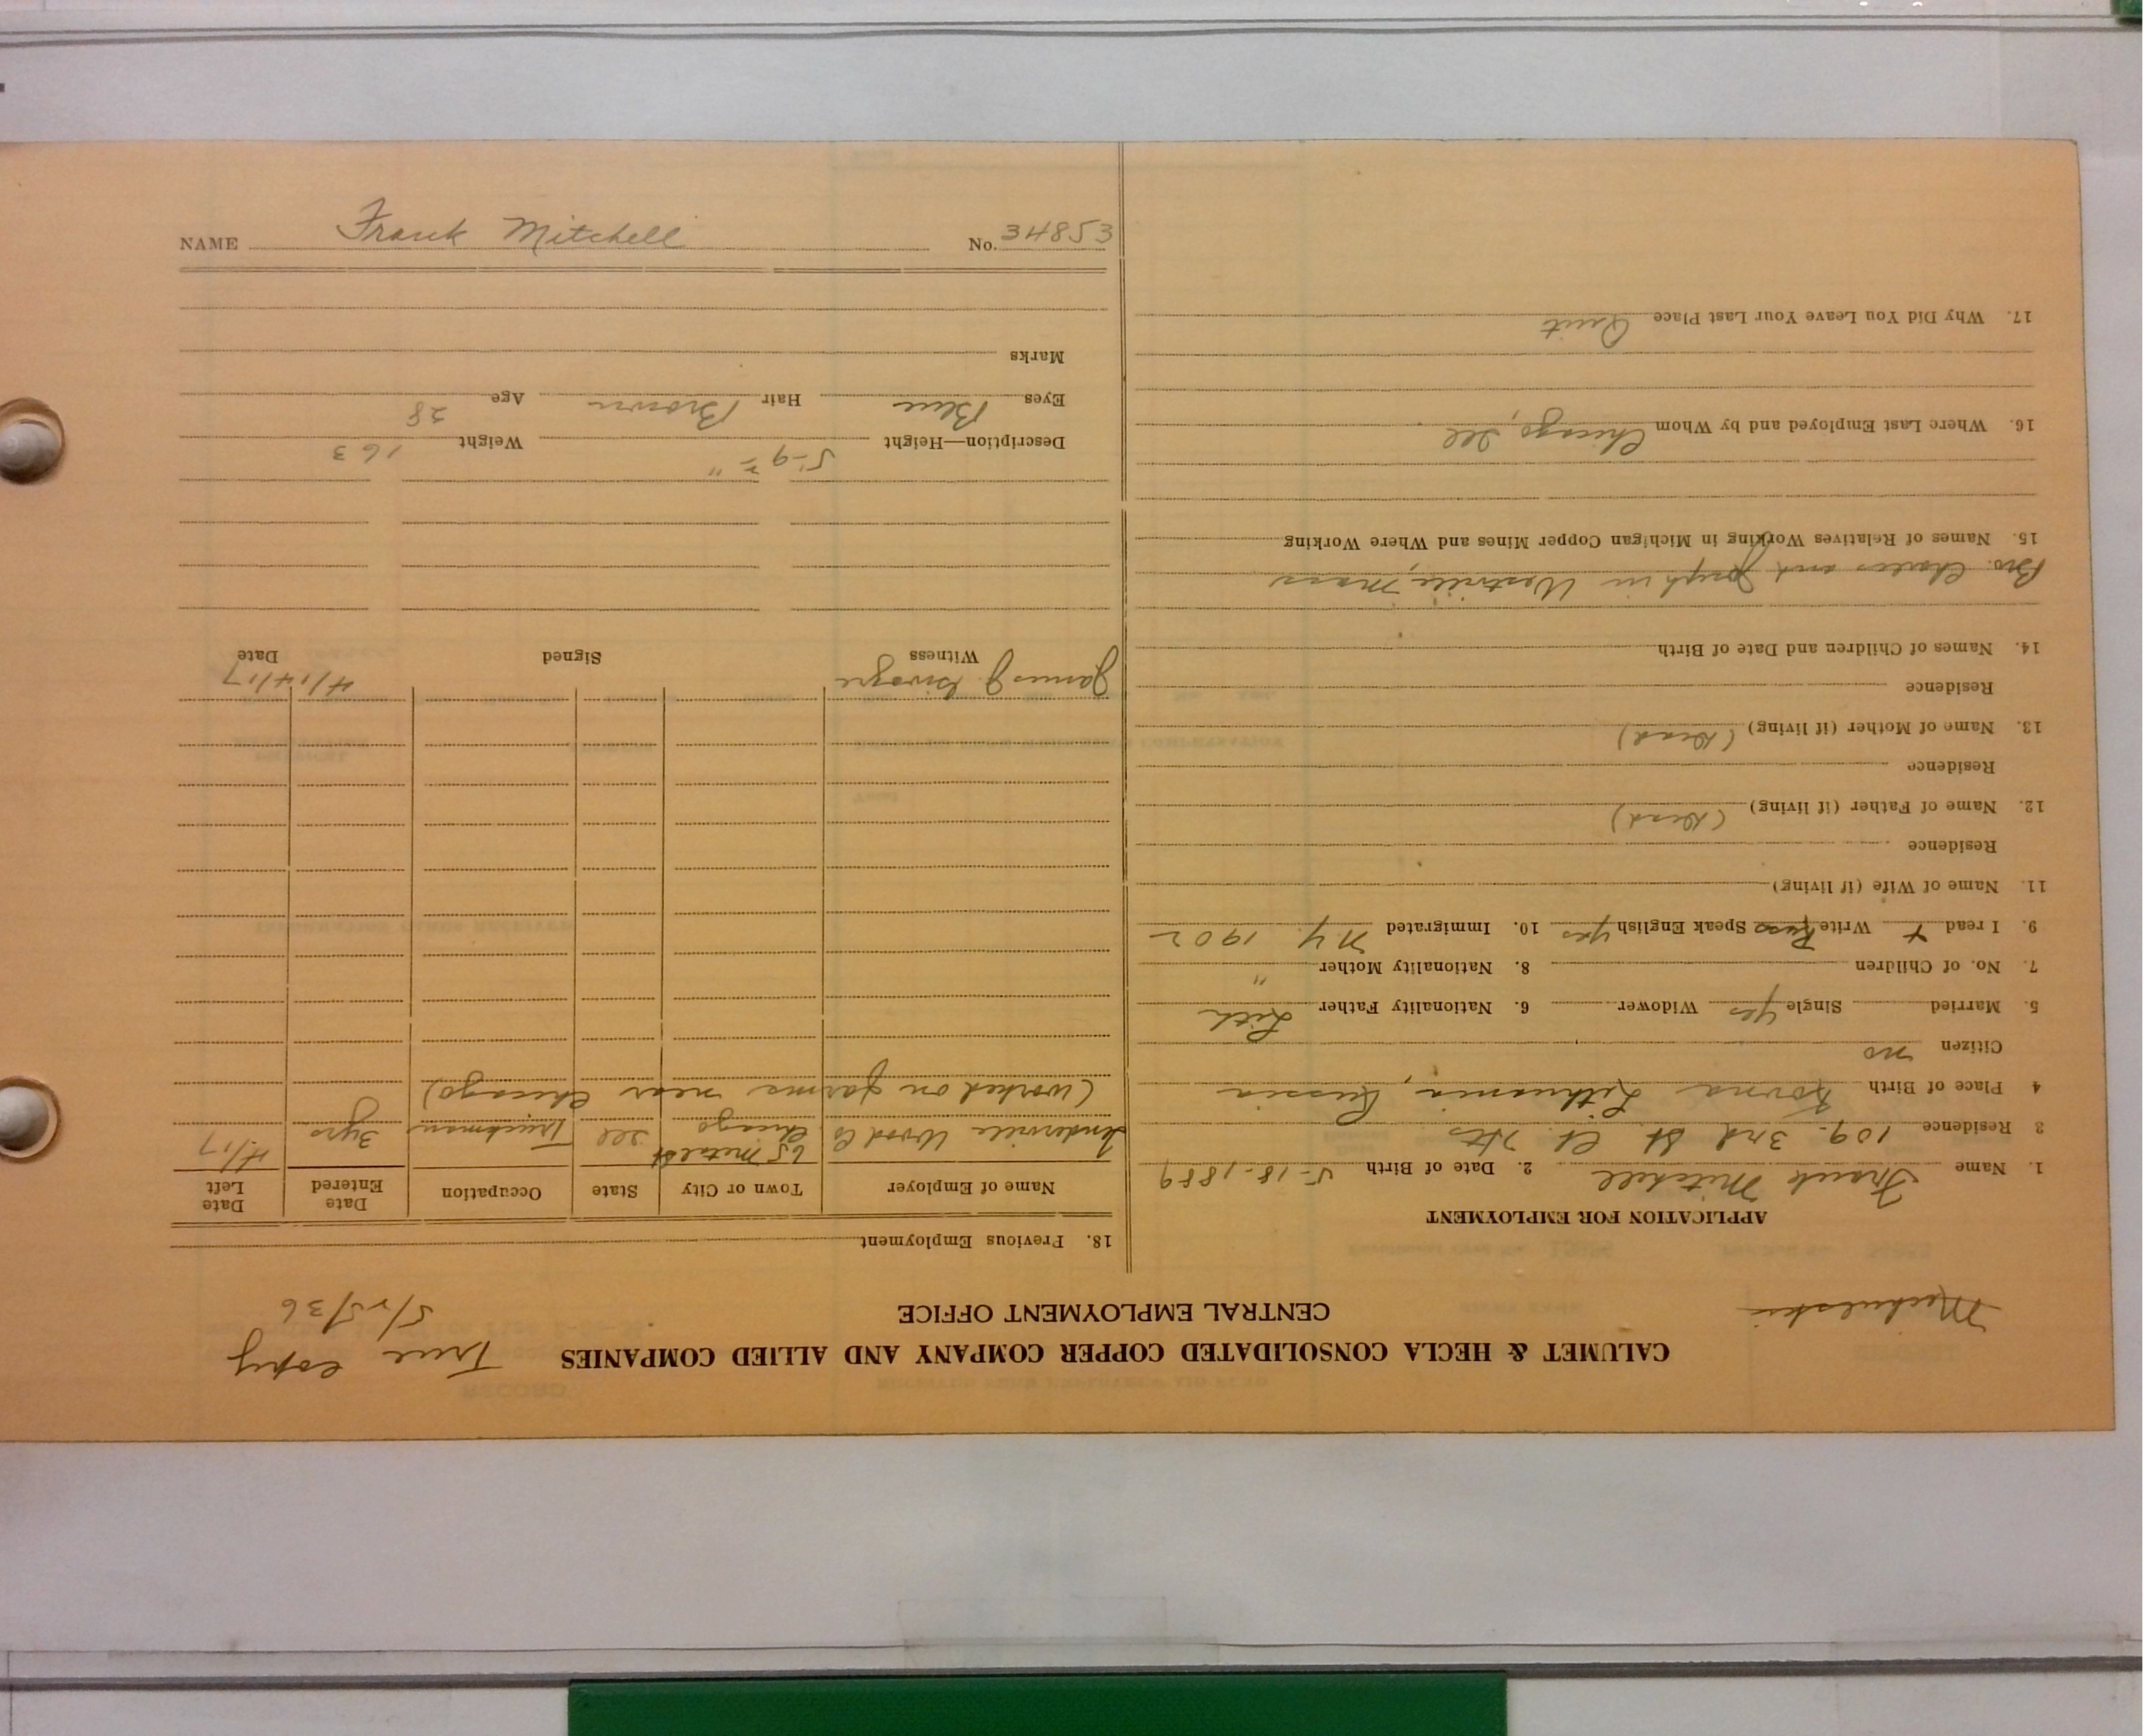 CALUMET & HECLA CONSOLIDATED COPPER COMPANY AND ALLIED COMPANIES
True Copy
CENTRAL EMPLOYMENT OFFICE
5/25/36
APPLICATION FOR EMPLOYMENT
1. Name Frank Mitchell 2. Date of Birth 5-18-1889
3 Residence 109. 3rd St. Ct. Hts
4 Place of Birth Kovna Lithuania, Russia
Citizen no
5. Married Single yes Widower 6. Nationality Father Lith
7. No. of Children 8. Nationality Mother "
9. I read + Write Russ Speak English yes 10. Immigrated N.Y. 1902
11. Name of Wife (if living)
Residence
12. Name of Father (if living) (Dead)
Residence
13. Name of Mother (if living) (Dead)
Residence
14. Names of Children and Date of Birth
Bro. Charles and Joseph in Westville, Mass
15. Names of Relatives Working in Michigan Copper Mines and Where Working
16. Where Last Employed and by Whom Chicago, Ill
17. Why Did You Leave Your Last Place Quit
18. Previous Employment
Name of Employer Town or City State Occupation Date Entered Date Left
Wood Co Chicago Ill Truckman 3yrs 4/17
(worked on farms near Chicago)
James J. 4/14/17
Witness Signed Date
Description—Height 5-9 " Weight 163
Eyes Blue Hair Brown Age 28
Marks
NAME Frank Mitchell No. 34853